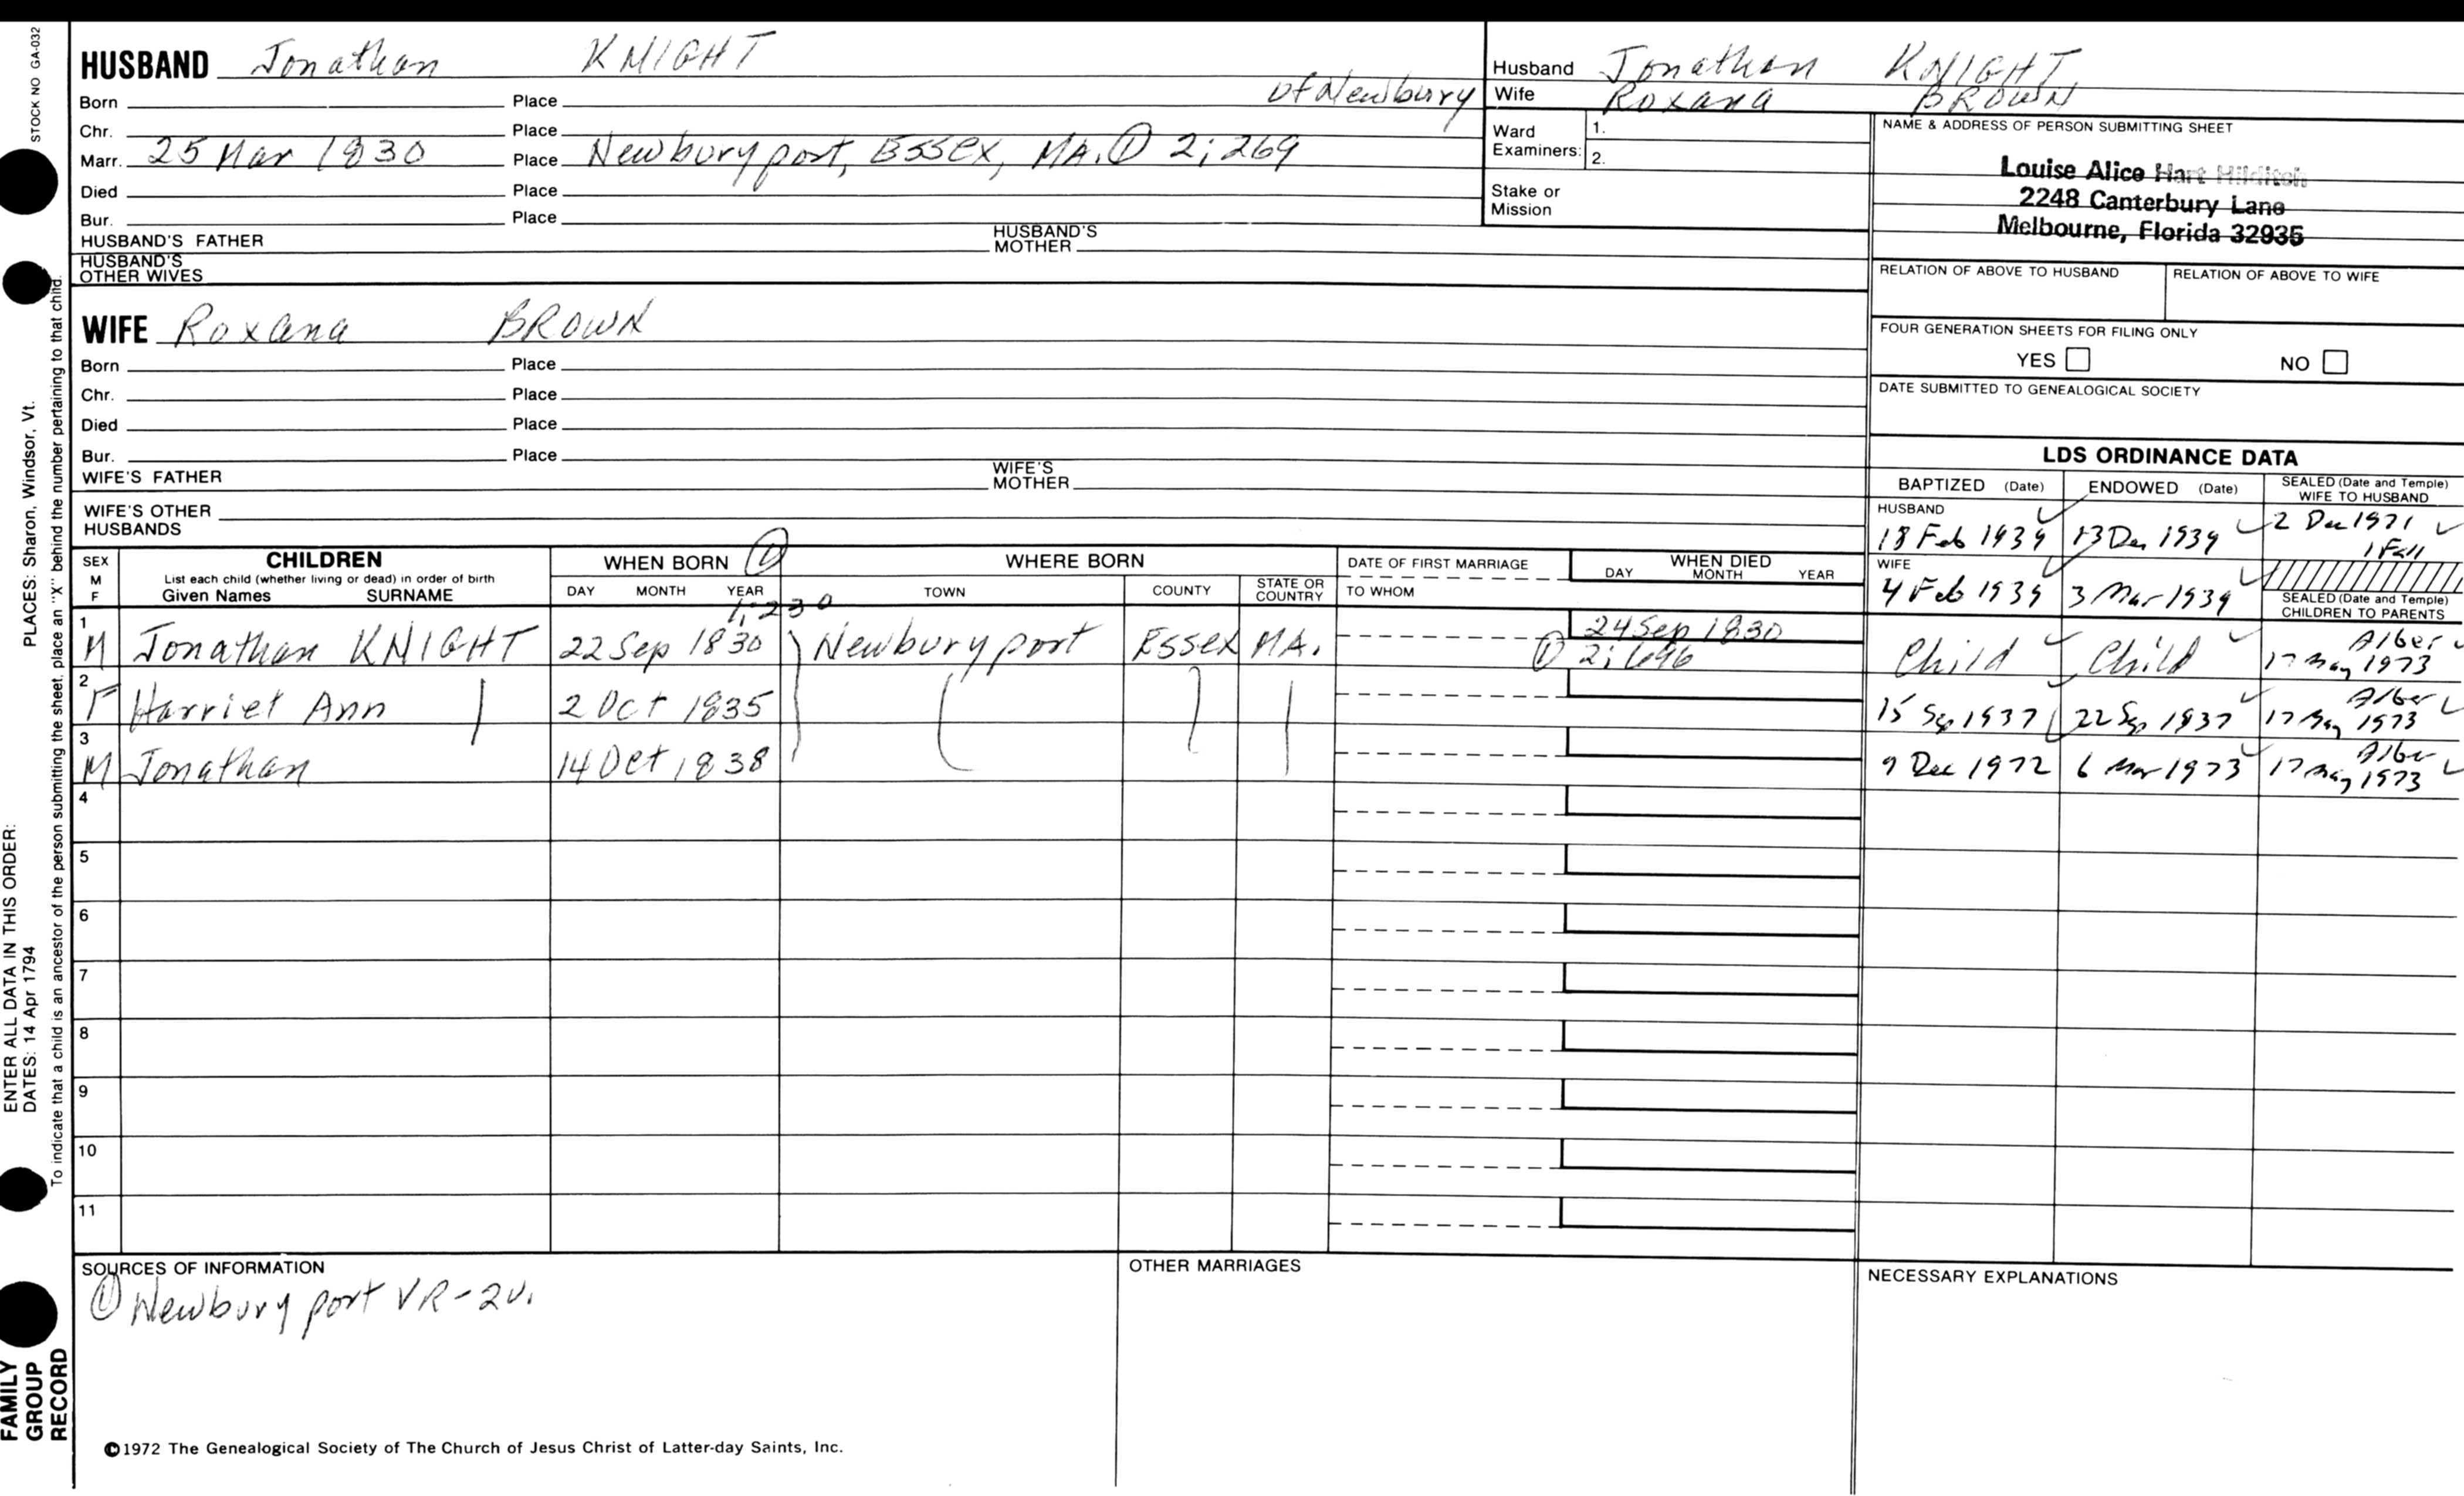 STOCK NO GA-032
PLACES: Sharon, Windsor, Vt.
ENTER ALL DATA IN THIS ORDER:
DATES: 14 Apr 1794
To indicate that a child is an ancestor of the person submitting the sheet, place an "X" behind the number pertaining to that child.
FAMILY
GROUP
RECORD
HUSBAND Jonathan KNIGHT
Born Place of Newbury
Chr. Place
Marr. 25 Mar 1830 Place Newburyport, Essex, MA. ① 2; 269
Died Place
Bur. Place
HUSBAND'S FATHER HUSBAND'S MOTHER
HUSBAND'S OTHER WIVES
WIFE Roxana BROWN
Born Place
Chr. Place
Died Place
Bur. Place
WIFE'S FATHER WIFE'S MOTHER
WIFE'S OTHER HUSBANDS
Husband Jonathan KNIGHT
Wife Roxana BROWN
Ward Examiners: 1.
2.
Stake or Mission
NAME & ADDRESS OF PERSON SUBMITTING SHEET
Louise Alice Hart Hilditch
2248 Canterbury Lane
Melbourne, Florida 32935
RELATION OF ABOVE TO HUSBAND RELATION OF ABOVE TO WIFE
FOUR GENERATION SHEETS FOR FILING ONLY
YES NO
DATE SUBMITTED TO GENEALOGICAL SOCIETY
LDS ORDINANCE DATA
BAPTIZED (Date) ENDOWED (Date) SEALED (Date and Temple) WIFE TO HUSBAND
HUSBAND
18 Feb 1939 13 Dec 1939 2 Dec 1971
WIFE
4 Feb 1939 3 Mar 1939
SEALED (Date and Temple) CHILDREN TO PARENTS
SEX M F CHILDREN WHEN BORN ① WHERE BORN DATE OF FIRST MARRIAGE WHEN DIED
List each child (whether living or dead) in order of birth
Given Names SURNAME DAY MONTH YEAR TOWN COUNTY STATE OR COUNTRY TO WHOM DAY MONTH YEAR
1; 230
1 M Jonathan KNIGHT 22 Sep 1830 Newburyport Essex MA. 24 Sep 1830 ① 2; 696 Child Child Alber 17 May 1973
2 F Harriet Ann 2 Oct 1835 15 Sep 1937 22 Sep 1937 Alber 17 May 1973
3 M Jonathan 14 Oct 1838 9 Dec 1972 6 Mar 1973 Alber 17 May 1973
4
5
6
7
8
9
10
11
SOURCES OF INFORMATION OTHER MARRIAGES NECESSARY EXPLANATIONS
① Newburyport VR-2v.
©1972 The Genealogical Society of The Church of Jesus Christ of Latter-day Saints, Inc.